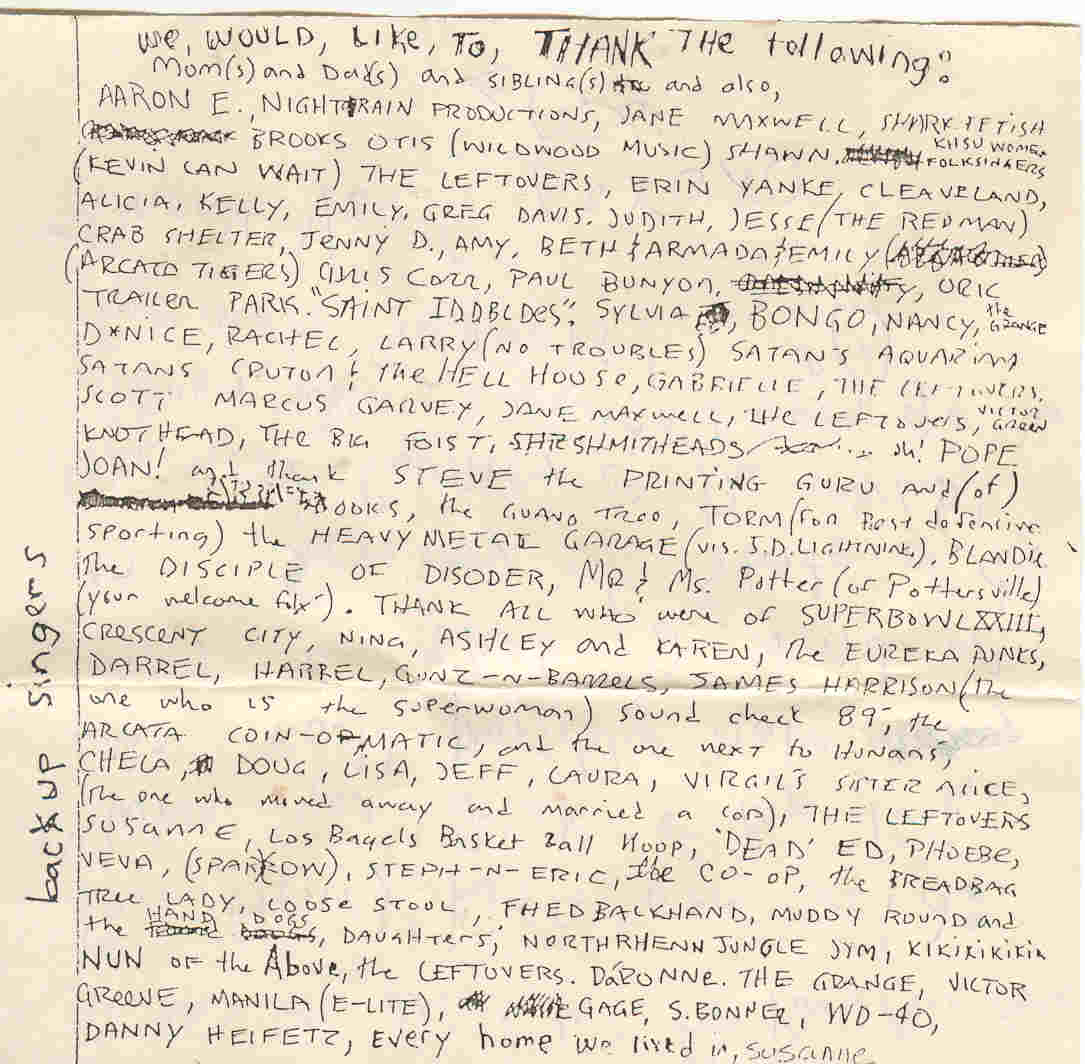 we, WOULD, LIKE, TO, THANK THE following:
Mom(s) and Dad(s) and SIBLING(S) and also,
AARON E., NIGHTRAIN PRODUCTIONS, JANE MAXWELL, SHARK FETISH
BROOKS OTIS (WILDWOOD MUSIC) SHAWN, KHSU WOMEN FOLKSINGERS
(KEVIN CAN WAIT) THE LEFTOVERS, ERIN YANKE, CLEAVELAND,
ALICIA, KELLY, EMILY, GREG DAVIS. JUDITH, JESSE (THE REDMAN)
CRAB SHELTER, JENNY D., AMY, BETH & ARMADA & EMILY
(ARCATA TIGERS) CHRIS CORR, PAUL BUNYON, URIC
TRAILER PARK. "SAINT", SYLVIA, BONGO, NANCY, the GRANGE
D*NICE, RACHEL, LARRY (NO TROUBLES) SATAN'S AQUARIUM
SATANS & the HELL HOUSE, GABRIELLE, THE LEFTOVERS.
SCOTT MARCUS GARVEY, JANE MAXWELL, the LEFTOVERS, VICTOR GREEN
KNOTHEAD, THE BIG FOIST, oh! POPE
JOAN! and thank STEVE the PRINTING GURU and (of)
BOOKS, the GUANO TREE, TORM (for Best defensive
sporting) the HEAVY METAL GARAGE (vis. J.D. LIGHTNING), BLANDIE
The DISCIPLE OF DISODER, MR & Ms. Potter (of Pottersville)
(your welcome folx). THANK ALL who were of SUPERBOWL XXIII,
CRESCENT CITY, NINA, ASHLEY and KAREN, The EUREKA PUNKS,
DARREL, HARREL, GUNZ-N-BARRELS, JAMES HARRISON (the
one who is the superwoman) sound check 89', the
ARCATA COIN-OP, MATIC, and the one next to HUNANS,
CHELA, DOUG, LISA, JEFF, LAURA, VIRGIL'S SISTER ALICE,
(the one who moved away and married a cop), THE LEFTOVERS
SUSANNE, Los Bagels Basket Ball Hoop, 'DEAD' ED, PHOEBE,
VEVA, (SPARROW), STEPH-N-ERIC, the CO-OP, the BREADBAG
TREE LADY, LOOSE STOOL, FHED BACKHAND, MUDDY ROUND and
the HAND DOGS, DAUGHTERS, NORTHRHENN JUNGLE JYM, KIKIKIKIKIKIA
NUN OF the Above, the LEFTOVERS. DaRONNE. THE GRANGE, VICTOR
GREENE, MANILA (E-LITE), GAGE, S. BONNER, WD-40,
DANNY HEIFETZ, Every home we lived in, SUSANNE
backup singers